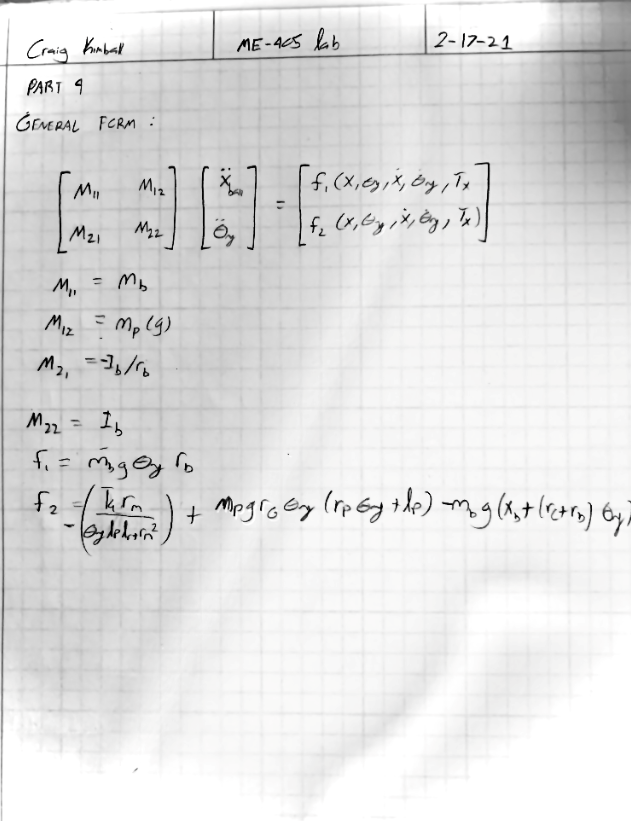 Craig Kimball ME-405 lab 2-17-21
PART 4
GENERAL FORM :
[M11 M12] [ẍball] = [f1 (x, θy, ẋ, θ̇y, Tx]
[M21 M22] [θ̈y] [f2 (x, θy, ẋ, θ̇y, Tx)]
M11 = mb
M12 = mp(g)
M21 = -Ib/rb
M22 = Ib
f1 = mb g θy rb
f2 = -( rm / ) + mp g rG θy (rp θy + lp) - mb g (xb + (rc+rb) θy)